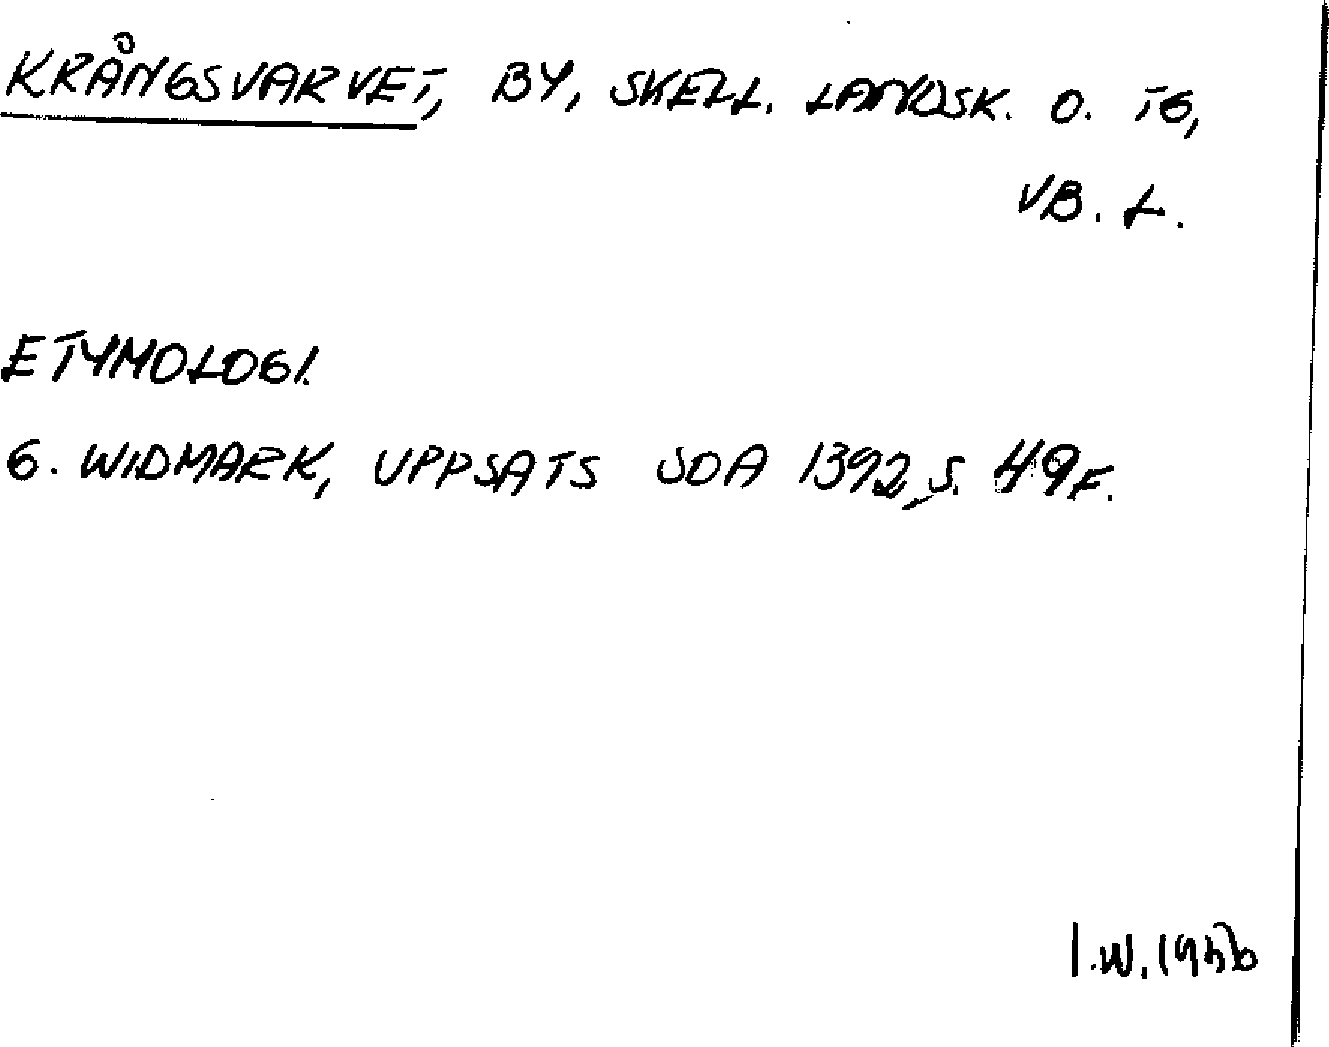 KRÅNGSVARVET, BY, SKELL. LANDSK. O. TG,
VB. L.
ETYMOLOGI.
G. WIDMARK, UPPSATS SOA 1392, S. 49 F.
I.W. 1956